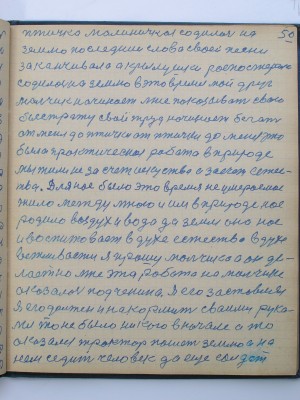 50
птичка малиничка садилась на
землю последний слова своей песни
заканчивала а крылушки роспостертою
садилась на землю в это время мой друг
мальчик начинает мне показывать свою
быстрату свой труд начинает бегать
от меня до птички от птички до меня это
была практическая работа в природе
мы жили не за счет искуства а за счет есте
ства. Для нас было это время не умераемое
жило между мною и им в природе нас
родило воздух и вода да земля оно нас
и воспитывает в духе естества в духа
вспиваетси Я прошу мальчика а он де
лает но мне эта работа на мальчике
оказалось подчинена. Я его заставляя
Я его должен и накормит своими рука
ми тоже было никого вначале а то
оказался трактор пашет землю а на
нем седит человек да еще солдат